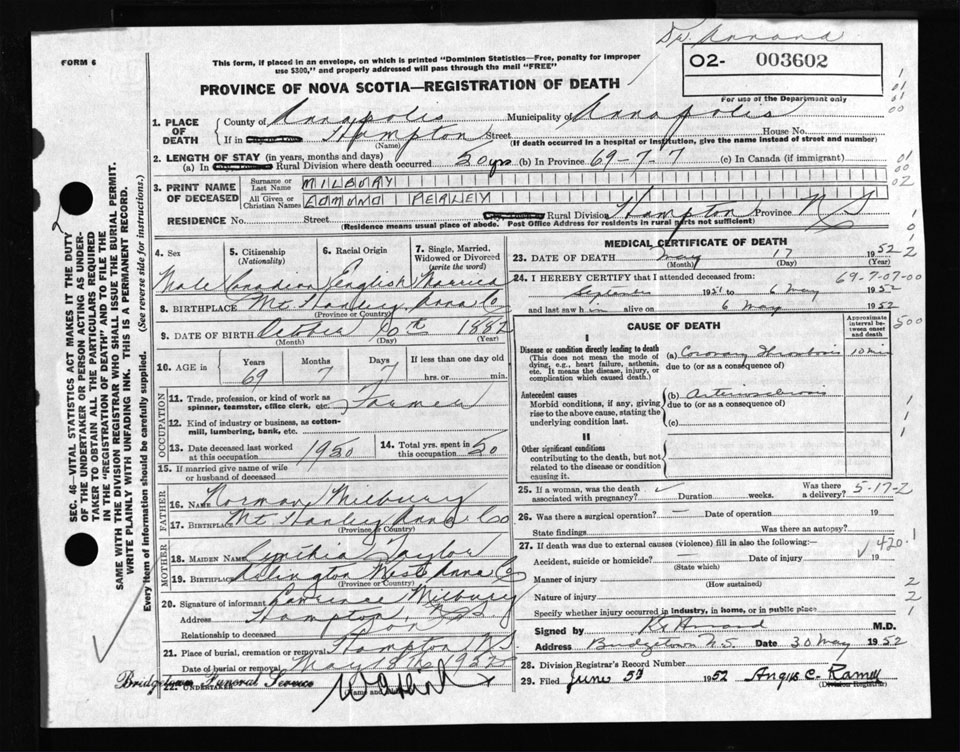 Dr. Annand
FORM 6
This form, if placed in an envelope, on which is printed "Dominion Statistics—Free, penalty for improper
use $300," and properly addressed will pass through the mail "FREE"
O2- 003602
For use of the Department only
PROVINCE OF NOVA SCOTIA—REGISTRATION OF DEATH
1. PLACE OF DEATH County of Annapolis Municipality of Annapolis
If in Hampton Street House No.
(Name) (If death occurred in a hospital or institution, give the name instead of street and number)
2. LENGTH OF STAY (in years, months and days)
(a) In Rural Division where death occurred 20 yrs (b) In Province 69-7-7 (c) In Canada (if immigrant)
3. PRINT NAME OF DECEASED Surname or Last Name MILBURY
All Given or Christian Names EDMUND PERLEY
RESIDENCE No. Street Rural Division Hampton Province N S
(Residence means usual place of abode. Post Office Address for residents in rural parts not sufficient)
4. Sex Male
5. Citizenship (Nationality) Canadian
6. Racial Origin English
7. Single, Married, Widowed or Divorced (write the word) Married
8. BIRTHPLACE Mt Hanley Anna Co
(Province or Country)
9. DATE OF BIRTH October 10th 1882
(Month) (Day) (Year)
10. AGE in Years 69 Months 7 Days 7 If less than one day old hrs. or min.
OCCUPATION
11. Trade, profession, or kind of work as spinner, teamster, office clerk, etc. Farmer
12. Kind of industry or business, as cotton-mill, lumbering, bank, etc.
13. Date deceased last worked at this occupation 1950
14. Total yrs. spent in this occupation 50
15. If married give name of wife or husband of deceased
FATHER
16. NAME Norman Milbury
17. BIRTHPLACE Mt Hanley Anna Co
(Province or Country)
MOTHER
18. MAIDEN NAME Cynthia Taylor
19. BIRTHPLACE Arlington West Anna Co
(Province or Country)
20. Signature of informant Lawrence Milbury
Address Hampton N.S.
Relationship to deceased Son
21. Place of burial, cremation or removal Hampton N S
Date of burial or removal May 18th 1952
22. UNDERTAKER Bridgetown Funeral Service
(Name and Address)
MEDICAL CERTIFICATE OF DEATH
23. DATE OF DEATH May 17 1952
(Month) (Day) (Year)
24. I HEREBY CERTIFY that I attended deceased from: 69-7-07-00
September 1951 to 6 May 1952
and last saw h im alive on 6 May 1952
CAUSE OF DEATH
Approximate interval between onset and death
I
Disease or condition directly leading to death (a) Coronary Thrombosis 10 min
(This does not mean the mode of dying, e.g., heart failure, asthenia, etc. It means the disease, injury, or complication which caused death.)
due to (or as a consequence of)
Antecedent causes (b) Arteriosclerosis
Morbid conditions, if any, giving rise to the above cause, stating the underlying condition last.
due to (or as a consequence of)
(c)
II
Other significant conditions
contributing to the death, but not related to the disease or condition causing it.
25. If a woman, was the death associated with pregnancy? Duration weeks. Was there a delivery? 5-17-2
26. Was there a surgical operation? — Date of operation 19
State findings Was there an autopsy?
27. If death was due to external causes (violence) fill in also the following:— 420.1
Accident, suicide or homicide? Date of injury 19
(State which)
Manner of injury
(How sustained)
Nature of injury
Specify whether injury occurred in industry, in home, or in public place
Signed by M.D.
Address Bridgetown N.S. Date 30 May 1952
28. Division Registrar's Record Number
29. Filed June 5th 1952 Angus C. Ramey
(Division Registrar)
SEC. 46—VITAL STATISTICS ACT MAKES IT THE DUTY
OF THE UNDERTAKER OR PERSON ACTING AS UNDER-
TAKER TO OBTAIN ALL THE PARTICULARS REQUIRED
IN THE "REGISTRATION OF DEATH" AND TO FILE THE
SAME WITH THE DIVISION REGISTRAR WHO SHALL ISSUE THE BURIAL PERMIT.
WRITE PLAINLY WITH UNFADING INK. THIS IS A PERMANENT RECORD.
Every item of information should be carefully supplied. (See reverse side for instructions.)